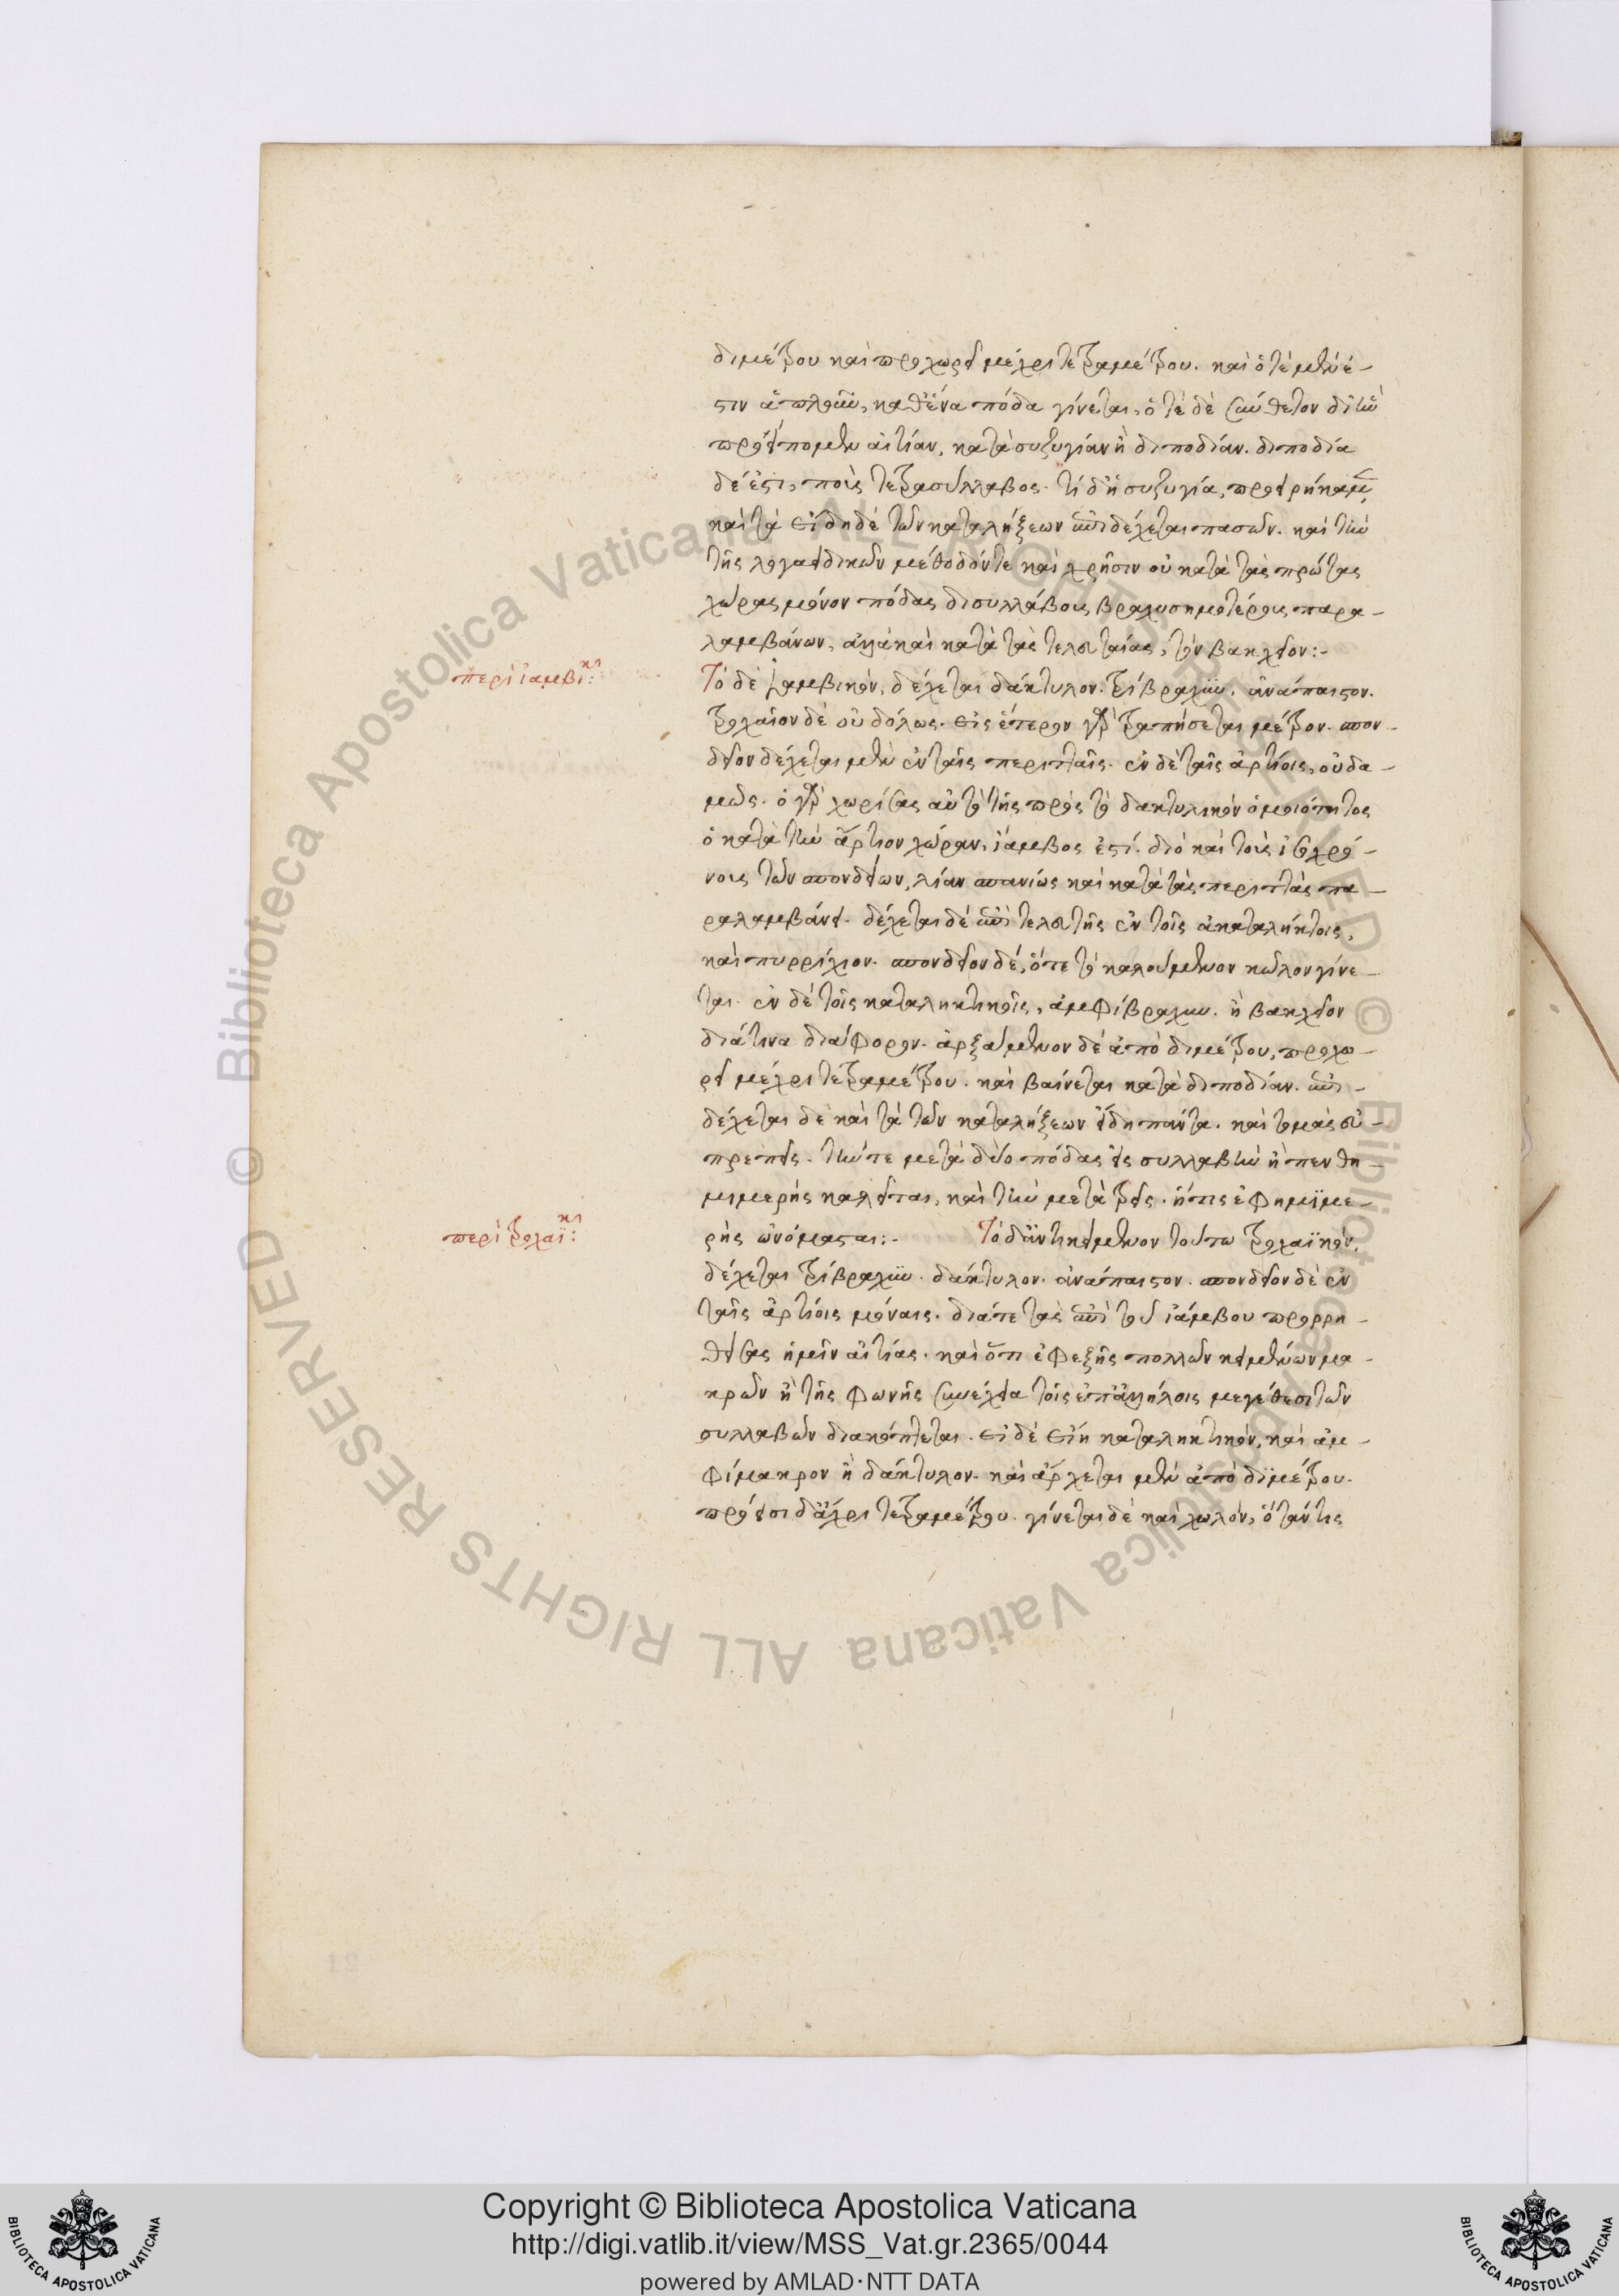 διμέτρου καὶ προχωρεῖ μέχρι τετραμέτρου. καὶ ὁτὲ μὲν ἐ-
στιν ἁπλοῦν, καθ' ἕνα πόδα γίνεται, ὁτὲ δὲ σύνθετον δι' ἣν
προείπομεν αἰτίαν, κατὰ συζυγίαν ἢ διποδίαν. διποδία
δέ ἐστι, ποὺς τετρασύλλαβος. τί δ' ἡ συζυγία, προειρήκαμεν
καὶ τὰ εἴδη δὲ τῶν καταλήξεων ἐπιδέχεται πασῶν. καὶ τὴν
τῆς λογαοιδικῶν μέθοδόν τε καὶ χρῆσιν οὐ κατὰ τὰς πρώτας
χώρας μόνον πόδας δισυλλάβους βραχυσημοτέρους παρα-
λαμβάνων, ἀλλὰ καὶ κατὰ τὰς τελευταίας, τὸν βακχεῖον:-
περὶ ἰαμβικ:
Τὸ δὲ ἰαμβικὸν, δέχεται δάκτυλον. τρίβραχυν. ἀνάπαιστον.
τροχαῖον δὲ οὐδόλως. εἰς ἕτερον γὰρ τραπήσεται μέτρον. σπον-
δεῖον δέχεται μὲν ἐν ταῖς περιτταῖς. ἐν δὲ ταῖς ἀρτίοις, οὐδα-
μῶς. ὁ γὰρ χωρίσας αὐτὸ τῆς πρὸς τὸ δακτυλικὸν ὁμοιότητος
ὁ κατὰ τὴν ἄρτιον χώραν, ἴαμβος ἐστί. διὸ καὶ τοὺς ἰσοχρό-
νους τῶν σπονδείων, λίαν σπανίως καὶ κατὰ τὰς περιττὰς πα-
ραλαμβάνει. δέχεται δὲ ἐπὶ τελευτῆς ἐν τοῖς ἀκαταλήκτοις,
καὶ πυρρίχιον. σπονδεῖον δέ, ὅτε τὸ καλούμενον κῶλον γίνε-
ται. ἐν δὲ τοῖς καταληκτικοῖς, ἀμφίβραχυν. ἢ βακχεῖον
διά τινα διάφορον. ἀρξάμενον δὲ ἀπὸ διμέτρου, προχω-
ρεῖ μέχρι τετραμέτρου. καὶ βαίνεται κατὰ διποδίαν. ἐπι-
δέχεται δὲ καὶ τὰ τῶν καταλήξεων εἴδη πάντα. καὶ τομὰς εὐ-
πρεπεῖς. τήν τε μετὰ δύο πόδας εἰς συλλαβὴν ἢ πενθη-
μιμερὴς καλεῖται, καὶ τὴν μετὰ τρεῖς. ἥτις ἐφημιμε-
περὶ τροχαϊκ:
ρὴς ὠνόμασται:- Τὸ δ' ἀντικείμενον τούτω τροχαϊκόν,
δέχεται τρίβραχυν. δάκτυλον. ἀνάπαιστον. σπονδεῖον δὲ ἐν
ταῖς ἀρτίοις μόναις. διά τε τὰς ἐπὶ τοῦ ἰάμβου προρρη-
θείσας ἡμῖν αἰτίας. καὶ ὅτι ἐφεξῆς πολλῶν κειμένων μα-
κρῶν ἡ τῆς φωνῆς συνέχεια τοῖς ἐπ' ἀλλήλοις μεγέθεσι τῶν
συλλαβῶν διακόπτεται. εἰ δὲ εἴη καταληκτικόν, καὶ ἀμ-
φίμακρον ἢ δάκτυλον. καὶ ἄρχεται μὲν ἀπὸ διμέτρου.
πρόεισι δ' ἄχρι τετραμέτρου. γίνεται δὲ καὶ χωλόν, ὅτάν τις
Copyright © Biblioteca Apostolica Vaticana
http://digi.vatlib.it/view/MSS_Vat.gr.2365/0044
powered by AMLAD·NTT DATA